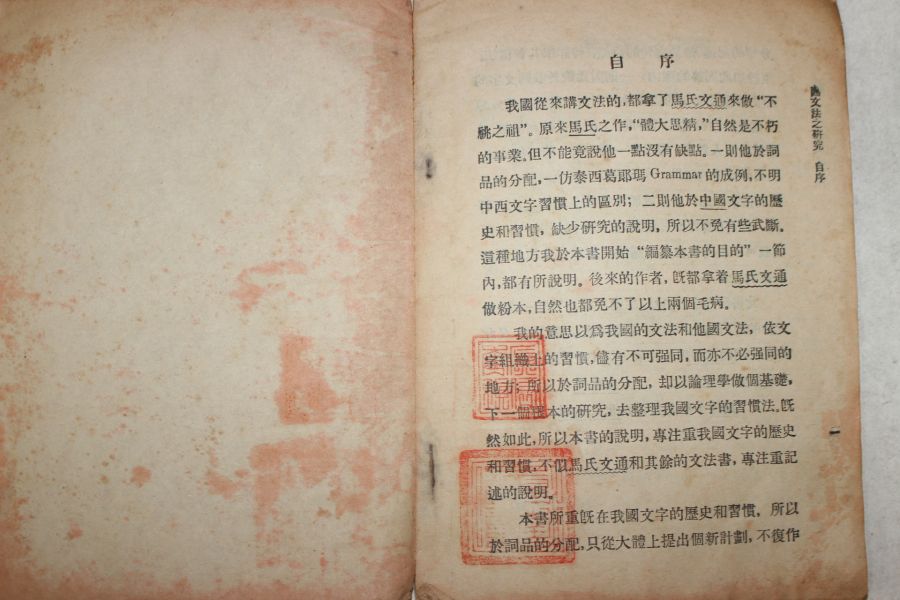 自序
我國從來講文法的，都拿了馬氏文通來做“不
祧之祖”。原來馬氏之作，“體大思精，”自然是不朽
的事業。但不能竟說他一點沒有缺點。一則他於詞
品的分配，一仿泰西葛郎瑪 Grammar 的成例，不明
中西文字習慣上的區別；二則他於中國文字的歷
史和習慣，缺少研究的說明，所以不免有些武斷。
這種地方我於本書開始“編纂本書的目的”一節
內，都有所說明。後來的作者，旣都拿着馬氏文通
做粉本，自然也都免不了以上兩個毛病。
我的意思以爲我國的文法和他國文法，依文
字組織上的習慣，儘有不可强同，而亦不必强同的
地方；所以於詞品的分配，却以論理學做個基礎，
下一個根本的研究，去整理我國文字的習慣法。旣
然如此，所以本書的說明，專注重我國文字的歷史
和習慣，不似馬氏文通和其餘的文法書，專注重記
述的說明。
本書所重旣在我國文字的歷史和習慣，所以
於詞品的分配，只從大體上提出個新計劃，不復作
國文法之研究 自序
一